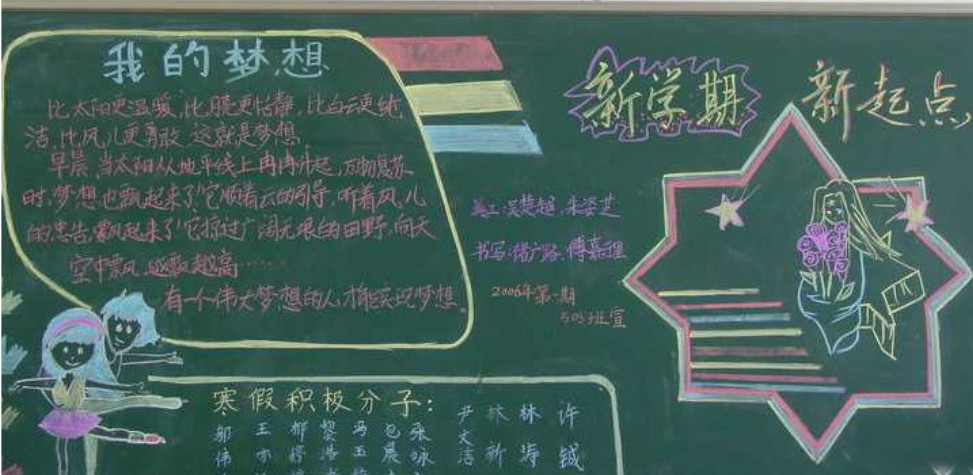 我的梦想
比太阳更温暖,比月亮更恬静,比白云更纯
洁,比风儿更勇敢,这就是梦想。
早晨,当太阳从地平线上冉冉升起,万物复苏
时,梦想也飘起来了!它顺着云的引导,听着风儿
的忠告,飘起来了!它掠过广阔无垠的田野,向天
空中飘,越飘越高……
有一个伟大梦想的人,才能实现梦想。
新学期 新起点
美工:吴楚越、朱姿芷
书写:褚广路、傅嘉理
2006年第一期
503班宣
寒假积极分子:
邬 王 郁 黎 冯 包 张 尹 林 林 许
伟 亦 婷 浩 玉 晨 咏 文 新 涛 铖
洁